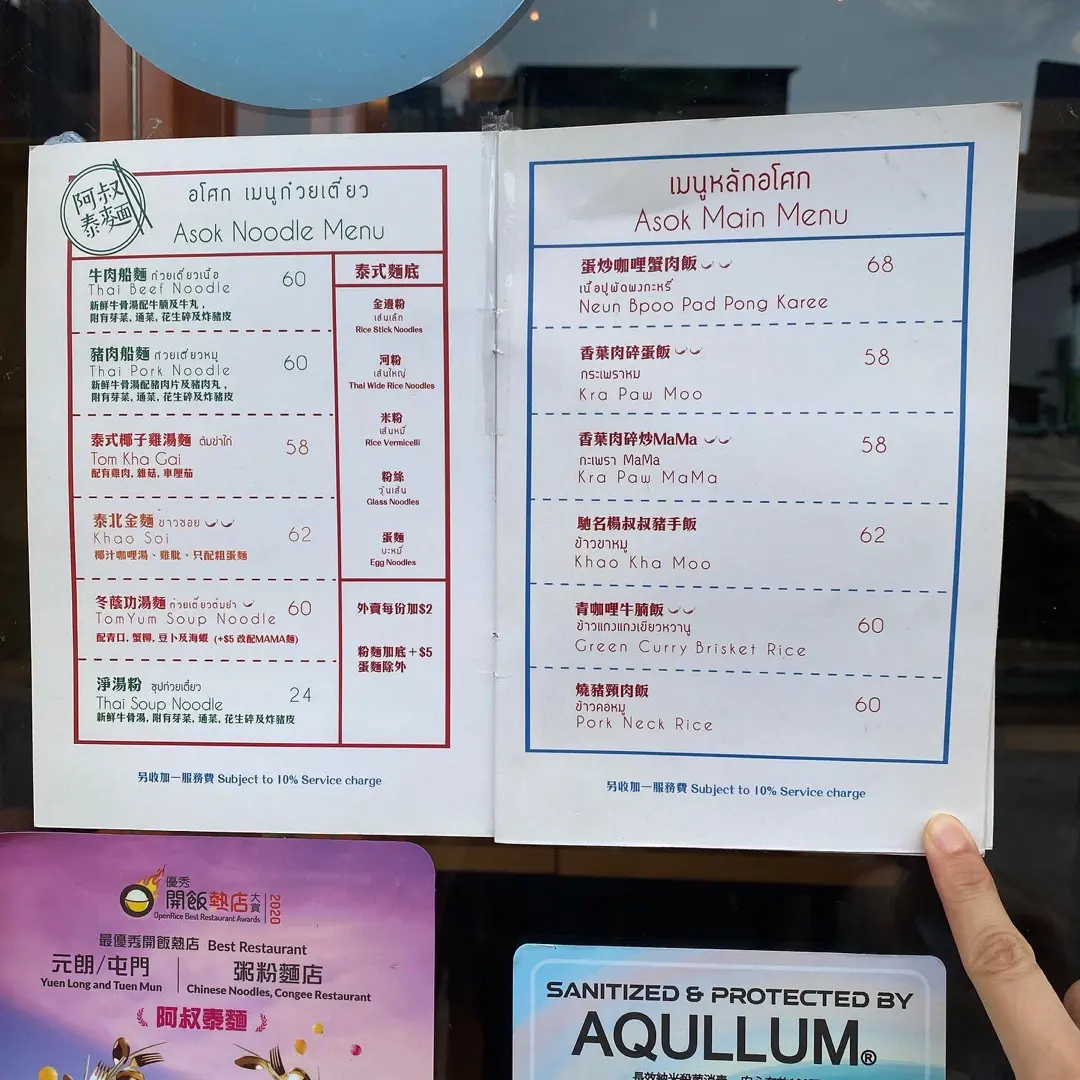 阿叔
泰麵
อโศก เมนูก๋วยเตี๋ยว
Asok Noodle Menu
牛肉船麵 ก๋วยเตี๋ยวเนื้อ
60
Thai Beef Noodle
新鮮牛骨湯配牛腩及牛丸,
附有芽菜, 通菜, 花生碎及炸豬皮
豬肉船麵 กวยเตี๋ยวหมู
60
Thai Pork Noodle
新鮮牛骨湯配豬肉片及豬肉丸,
附有芽菜, 通菜, 花生碎及炸豬皮
泰式椰子雞湯麵 ต้มข่าไก่
58
Tom Kha Gai
配有雞肉, 雜菇, 車厘茄
泰北金麵 ข้าวซอย
62
Khao Soi
椰汁咖哩湯、雞肶、只配粗蛋麵
冬蔭功湯麵 ก๋วยเตี๋ยวต้มยำ
60
TomYum Soup Noodle
配青口, 蟹柳, 豆卜及海蝦 (+$5 改配MAMA麵)
淨湯粉 ซุปก๋วยเตี๋ยว
24
Thai Soup Noodle
新鮮牛骨湯, 附有芽菜, 通菜, 花生碎及炸豬皮
泰式麵底
金邊粉
เส้นเล็ก
Rice Stick Noodles
河粉
เส้นใหญ่
Thai Wide Rice Noodles
米粉
เส้นหมี่
Rice Vermicelli
粉絲
วุ้นเส้น
Glass Noodles
蛋麵
บะหมี่
Egg Noodles
外賣每份加$2
粉麵加底+$5
蛋麵除外
另收加一服務費 Subject to 10% Service charge
เมนูหลักอโศก
Asok Main Menu
蛋炒咖哩蟹肉飯
68
เนื้อปูผัดผงกะหรี่
Neun Bpoo Pad Pong Karee
香葉肉碎蛋飯
58
กระเพราหม
Kra Paw Moo
香葉肉碎炒MaMa
58
กะเพรา MaMa
Kra Paw MaMa
馳名楊叔叔豬手飯
62
ข้าวขาหมู
Khao Kha Moo
青咖哩牛腩飯
60
ข้าวแกงแกงเขียวหวานู
Green Curry Brisket Rice
燒豬頸肉飯
60
ข้าวคอหมู
Pork Neck Rice
另收加一服務費 Subject to 10% Service charge
優秀
開飯熱店大賞 2020
OpenRice Best Restaurant Awards
最優秀開飯熱店 Best Restaurant
元朗/屯門
Yuen Long and Tuen Mun
粥粉麵店
Chinese Noodles, Congee Restaurant
阿叔泰麵
SANITIZED & PROTECTED BY
AQULLUM®